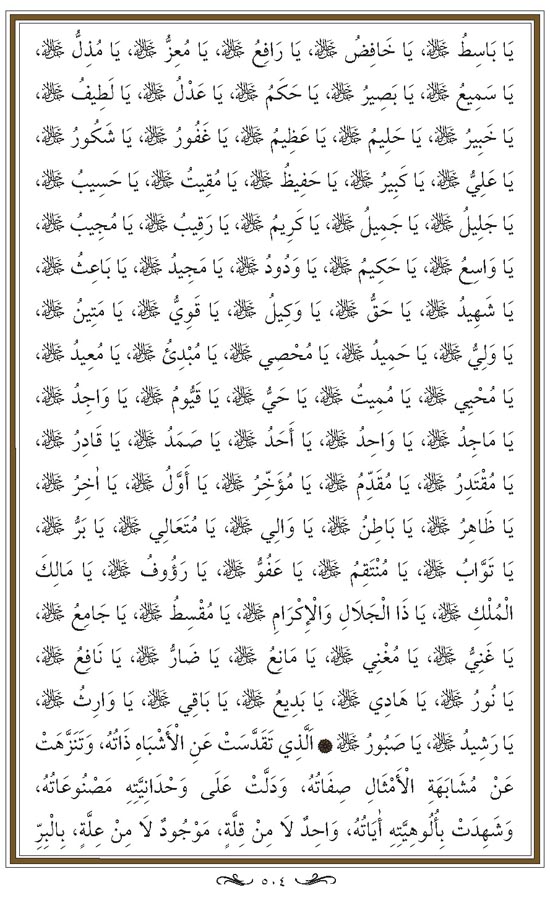 يَا بَاسِطُ ﷻ، يَا خَافِضُ ﷻ، يَا رَافِعُ ﷻ، يَا مُعِزُّ ﷻ، يَا مُذِلُّ ﷻ،
يَا سَمِيعُ ﷻ، يَا بَصِيرُ ﷻ، يَا حَكَمُ ﷻ، يَا عَدْلُ ﷻ، يَا لَطِيفُ ﷻ،
يَا خَبِيرُ ﷻ، يَا حَلِيمُ ﷻ، يَا عَظِيمُ ﷻ، يَا غَفُورُ ﷻ، يَا شَكُورُ ﷻ،
يَا عَلِيُّ ﷻ، يَا كَبِيرُ ﷻ، يَا حَفِيظُ ﷻ، يَا مُقِيتُ ﷻ، يَا حَسِيبُ ﷻ،
يَا جَلِيلُ ﷻ، يَا جَمِيلُ ﷻ، يَا كَرِيمُ ﷻ، يَا رَقِيبُ ﷻ، يَا مُجِيبُ ﷻ،
يَا وَاسِعُ ﷻ، يَا حَكِيمُ ﷻ، يَا وَدُودُ ﷻ، يَا مَجِيدُ ﷻ، يَا بَاعِثُ ﷻ،
يَا شَهِيدُ ﷻ، يَا حَقُّ ﷻ، يَا وَكِيلُ ﷻ، يَا قَوِيُّ ﷻ، يَا مَتِينُ ﷻ،
يَا وَلِيُّ ﷻ، يَا حَمِيدُ ﷻ، يَا مُحْصِي ﷻ، يَا مُبْدِئُ ﷻ، يَا مُعِيدُ ﷻ،
يَا مُحْيِي ﷻ، يَا مُمِيتُ ﷻ، يَا حَيُّ ﷻ، يَا قَيُّومُ ﷻ، يَا وَاجِدُ ﷻ،
يَا مَاجِدُ ﷻ، يَا وَاحِدُ ﷻ، يَا أَحَدُ ﷻ، يَا صَمَدُ ﷻ، يَا قَادِرُ ﷻ،
يَا مُقْتَدِرُ ﷻ، يَا مُقَدِّمُ ﷻ، يَا مُؤَخِّرُ ﷻ، يَا أَوَّلُ ﷻ، يَا اٰخِرُ ﷻ،
يَا ظَاهِرُ ﷻ، يَا بَاطِنُ ﷻ، يَا وَالِي ﷻ، يَا مُتَعَالِي ﷻ، يَا بَرُّ ﷻ،
يَا تَوَّابُ ﷻ، يَا مُنْتَقِمُ ﷻ، يَا عَفُوُّ ﷻ، يَا رَؤُوفُ ﷻ، يَا مَالِكَ
الْمُلْكِ ﷻ، يَا ذَا الْجَلَالِ وَالْإِكْرَامِ ﷻ، يَا مُقْسِطُ ﷻ، يَا جَامِعُ ﷻ،
يَا غَنِيُّ ﷻ، يَا مُغْنِي ﷻ، يَا مَانِعُ ﷻ، يَا ضَارُّ ﷻ، يَا نَافِعُ ﷻ،
يَا نُورُ ﷻ، يَا هَادِي ﷻ، يَا بَدِيعُ ﷻ، يَا بَاقِي ﷻ، يَا وَارِثُ ﷻ،
يَا رَشِيدُ ﷻ، يَا صَبُورُ ﷻ ● اَلَّذِي تَقَدَّسَتْ عَنِ الْأَشْبَاهِ ذَاتُهُ، وَتَنَزَّهَتْ
عَنْ مُشَابَهَةِ الْأَمْثَالِ صِفَاتُهُ، وَدَلَّتْ عَلَى وَحْدَانِيَّتِهِ مَصْنُوعَاتُهُ،
وَشَهِدَتْ بِأُلُوهِيَّتِهِ أٰيَاتُهُ، وَاحِدٌ لَا مِنْ قِلَّةٍ، مَوْجُودٌ لَا مِنْ عِلَّةٍ، بِالْبِرِّ
٥٠٤